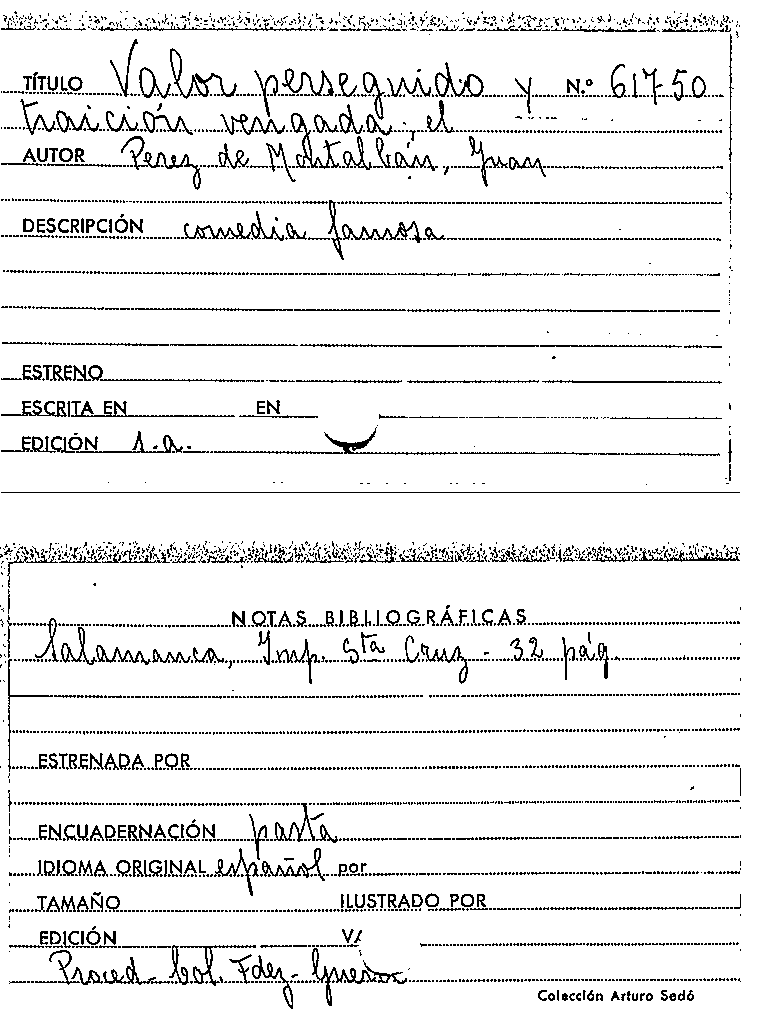 TÍTULO Valor perseguido y N.º 617-50
traición vengada, el
AUTOR Perez de Montalbán, Juan
DESCRIPCIÓN comedia famosa
ESTRENO
ESCRITA EN EN
EDICIÓN s.a.
NOTAS BIBLIOGRÁFICAS
Salamanca, Imp. Sta Cruz - 32 pág.
ESTRENADA POR
ENCUADERNACIÓN pasta
IDIOMA ORIGINAL español por
TAMAÑO ILUSTRADO POR
EDICIÓN
Proced- Col. Fdez-
Colección Arturo Sedó